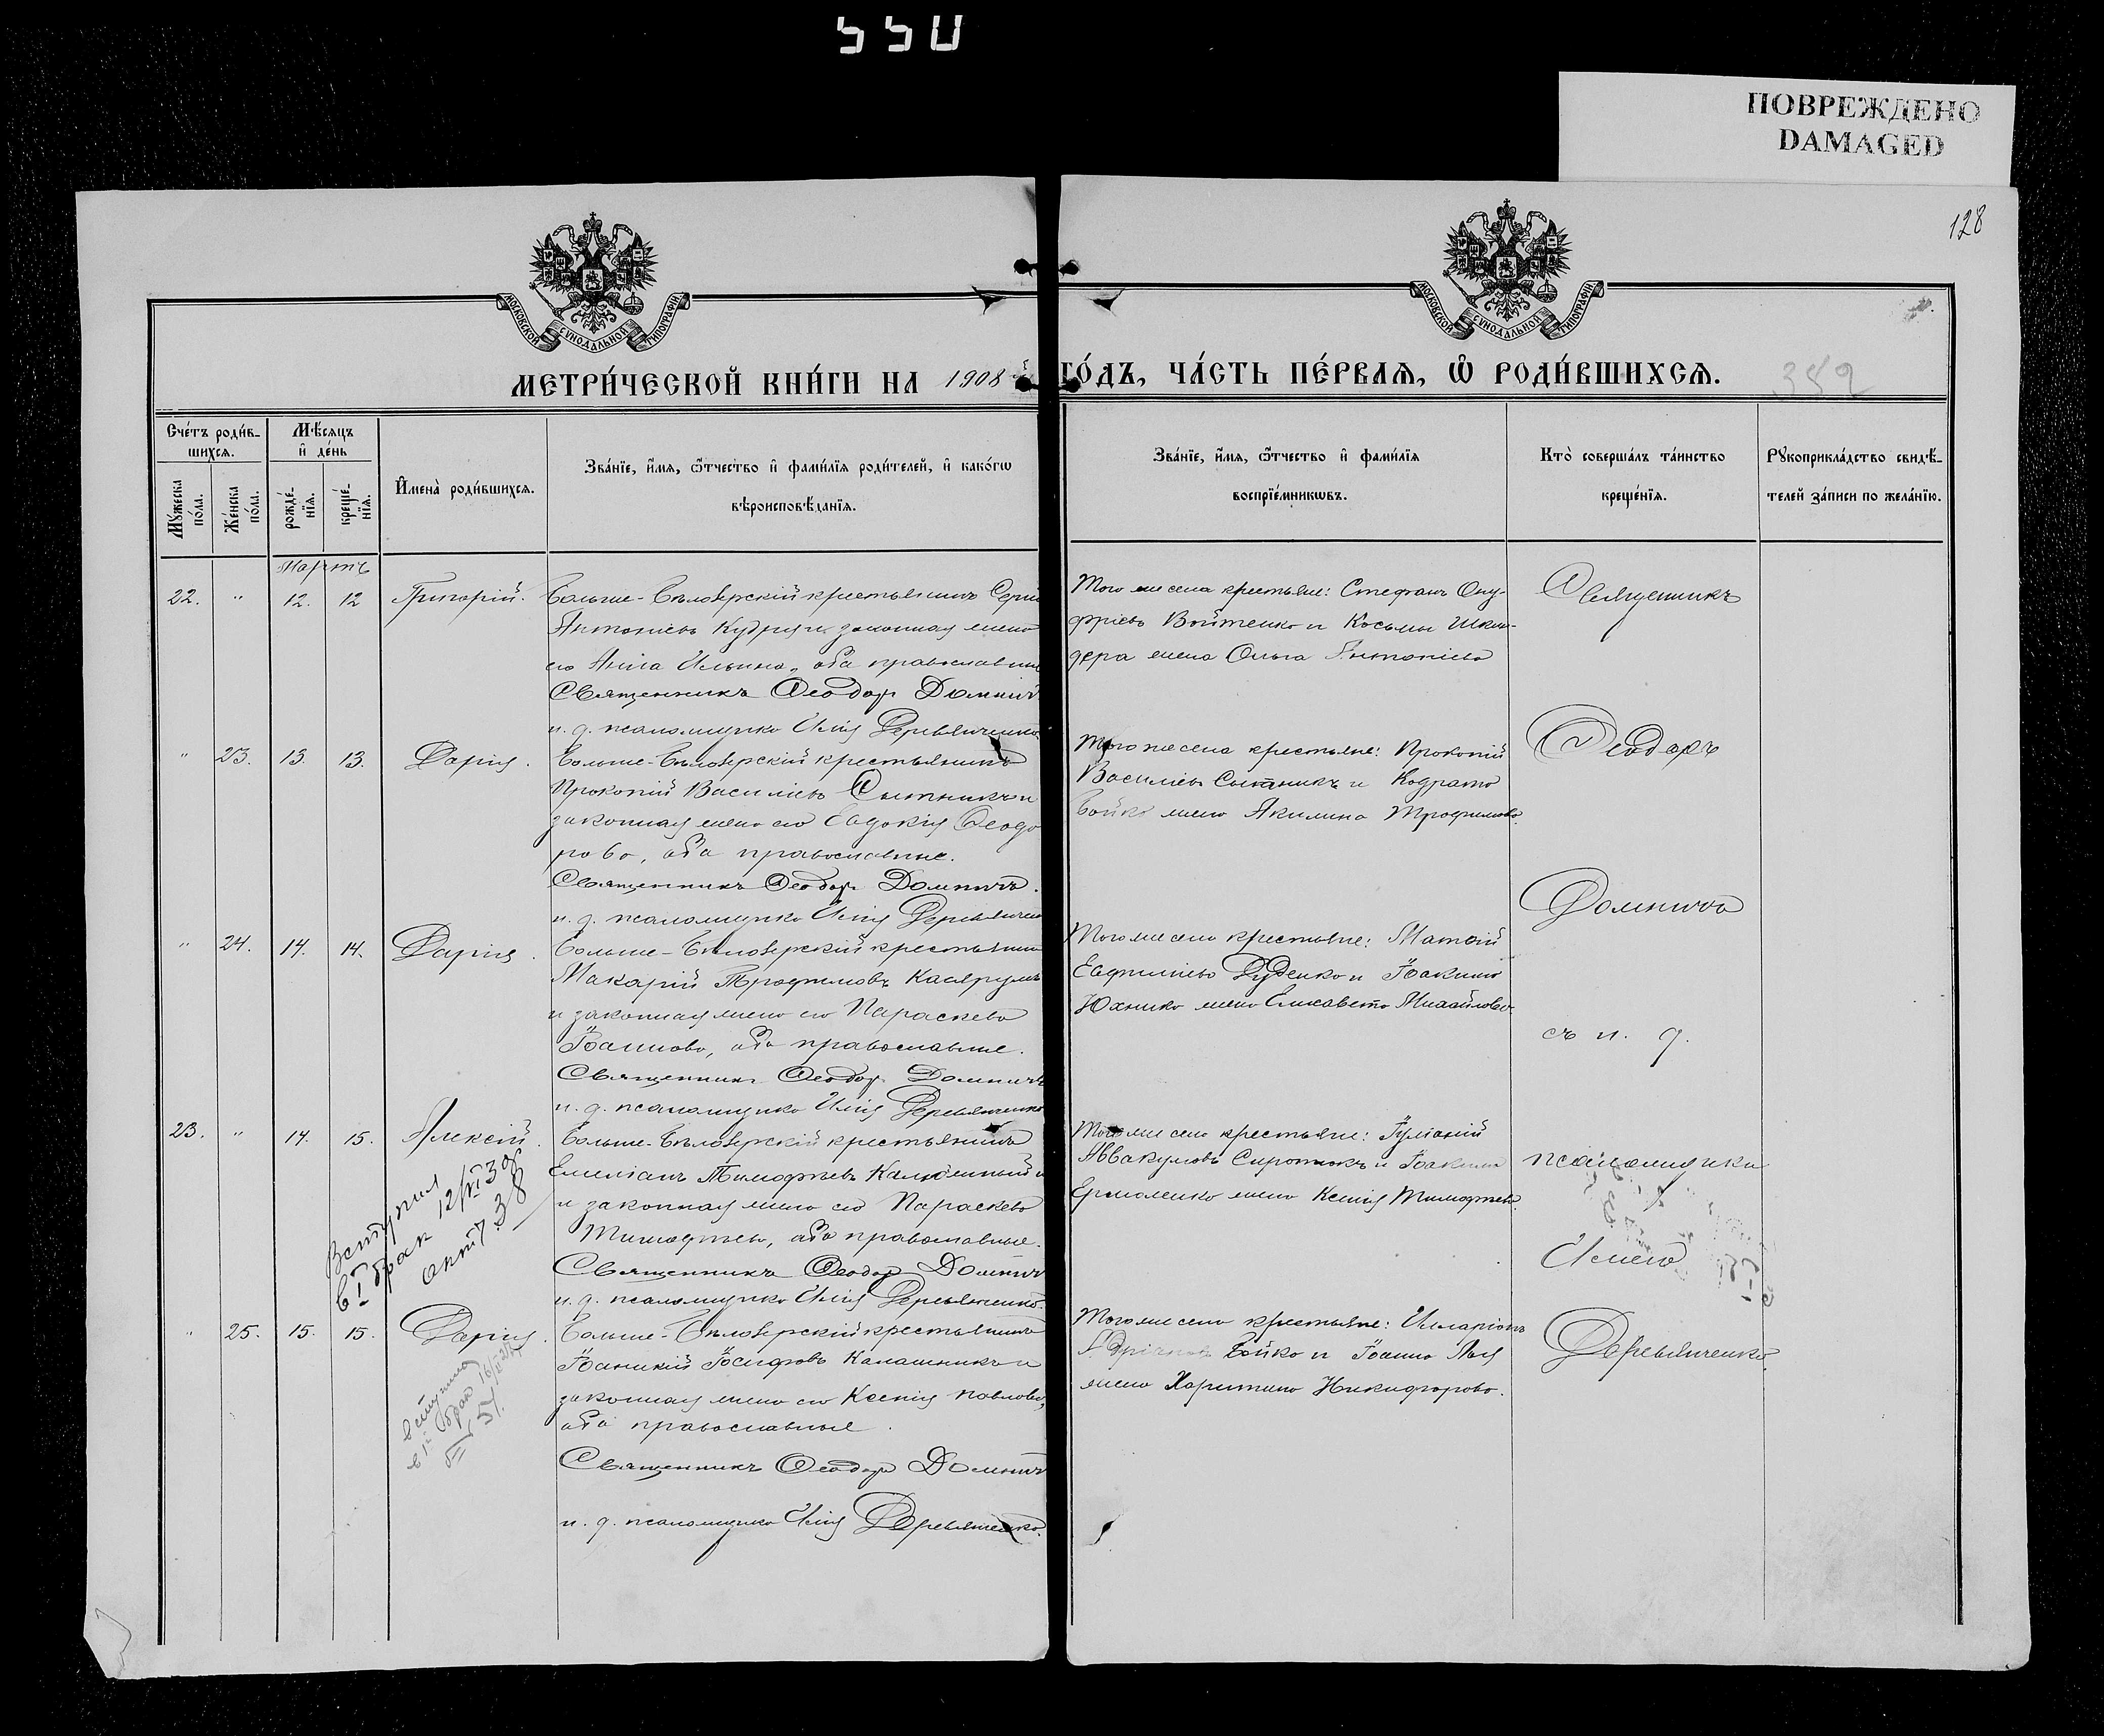 550
ПОВРЕЖДЕНО
DAMAGED
128
МОСКОВСКОЙ СѴНОДАЛЬНОЙ ТИПОГРАФІИ
МОСКОВСКОЙ СѴНОДАЛЬНОЙ ТИПОГРАФІИ
МЕТРИ́ЧЕСКОЙ КНИ́ГИ НА 1908
ГО́ДЪ, ЧА́СТЬ ПЕ́РВАѦ, Ѽ РОДИ́ВШИХСѦ.
352
Сче́тъ роди́в-
шихсѧ.
Мѣ́сѧцъ
и҆ де́нь
Мꙋ́жеска
по́ла.
Же́нска
по́ла.
рожде́-
нїѧ.
креще́-
нїѧ.
И҆мена̀ роди́вшихсѧ.
Зва́нїе, и҆́мѧ, ѻ҆́тчество и҆ фами́лїѧ роди́телей, и҆ како́гѡ
вѣроисповѣ́данїѧ.
Зва́нїе, и҆́мѧ, ѻ҆́тчество и҆ фами́лїѧ
воспрїе́мникѡвъ.
Кто̀ соверша́лъ та́инство
креще́нїѧ.
Рꙋкоприкла́дство свидѣ́-
телей за́писи по жела́нїю.
Мартъ
22. " 12. 12 Григорій. Больше-Бѣлозерскій крестьянинъ
Антоніевъ Кудря и законная жена
его Анна Ильина, оба православные
Священникъ Ѳеодоръ Домнич
и. д. псаломщика Илія Деревянченко
Того же села крестьяне: Стефанъ Ону-
фріевъ Войтенко и Косьмы Шкин-
дера жена Ольга Антоніева
" 23. 13. 13. Дарія. Больше-Бѣлозерскій крестьянинъ
Прокопій Василіевъ Сытникъ и
законная жена его Евдокія Ѳеодо
рова, оба православные.
Священникъ Ѳеодоръ Домничъ.
и. д. псаломщика Илія Деревянчен
Того же села крестьяне: Прокопій
Василіевъ Сытникъ и Кодрата
Бойко жена Акилина Трофимова.
" 24. 14. 14. Дарія. Больше-Бѣлозерскій крестьянин
Макарій Трофимовъ
и законная жена его Параскева
Іоаннова, оба православные.
Священникъ Ѳеодоръ Домничъ
и. д. псаломщика Илія Деревянченко
Того же села крестьяне: Матѳій
Евфиміевъ Руденко и Іоакима
Юхнико жена Елисавета Михайлова
23. " 14. 15. Алексій. Больше-Бѣлозерскій крестьянинъ
Емеліанъ Тимофѣевъ
и законная жена его Параскева
Тимофѣева, оба православные.
Священникъ Ѳеодоръ Домнич
и. д. псаломщика Илія Деревянченко.
Того же села крестьяне: Іуліаній
Аввакумовъ Сиротюкъ и Іоакима
Ермоленко жена Ксенія Тимофѣева.
Вступил
в I брак 12/VI 38
акт 7. 38
" 25. 15. 15. Дарія. Больше-Бѣлозерскій крестьянинъ
Іоаникій Іосифовъ Калашникъ и
законная жена его Ксенія Павлова,
оба православные.
Священникъ Ѳеодоръ Домнич
и. д. псаломщика Илія Деревянченко.
Того же села крестьяне: Иларіонъ
Адріановъ Бойко и Іоанна Лыя
жена Харитина Никифорова.
вступила
в I брак
51.
Священникъ
Ѳеодоръ
Домничъ
съ и. д.
псаломщика
Иліею
Деревянченко.